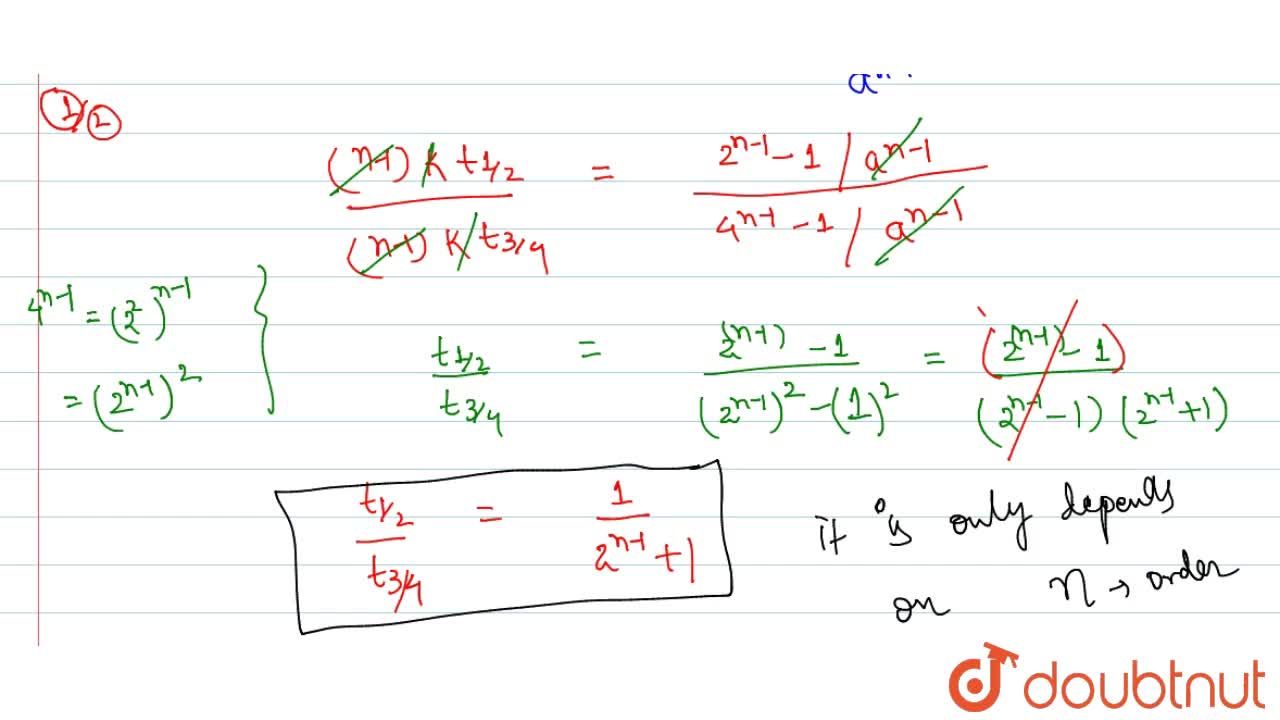 a^n-1
1/2
(n-1) k t1/2 / (n-1) k t3/4 = 2^n-1 - 1 / a^n-1 / 4^n-1 - 1 / a^n-1
4^n-1 = (2^2)^n-1
= (2^n-1)^2
t1/2 / t3/4 = 2^(n-1) - 1 / (2^n-1)^2 - (1)^2 = (2^n-1 - 1) / (2^n-1 - 1) (2^n-1 + 1)
t1/2 / t3/4 = 1 / 2^n-1 + 1
it is only depends
on n → order
doubtnut